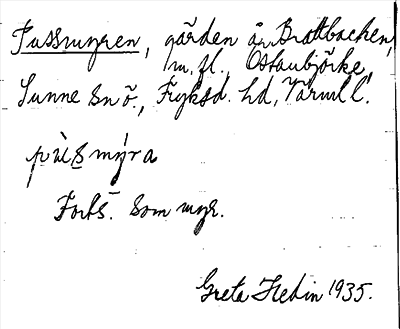 Tussmyren, gården är Brattbacken,
m.fl., Östanbjörke,
Sunne sn ö., Fryksd. hd, Värml l.
mýra
Forts. som myr.
Greta Hedin 1935.